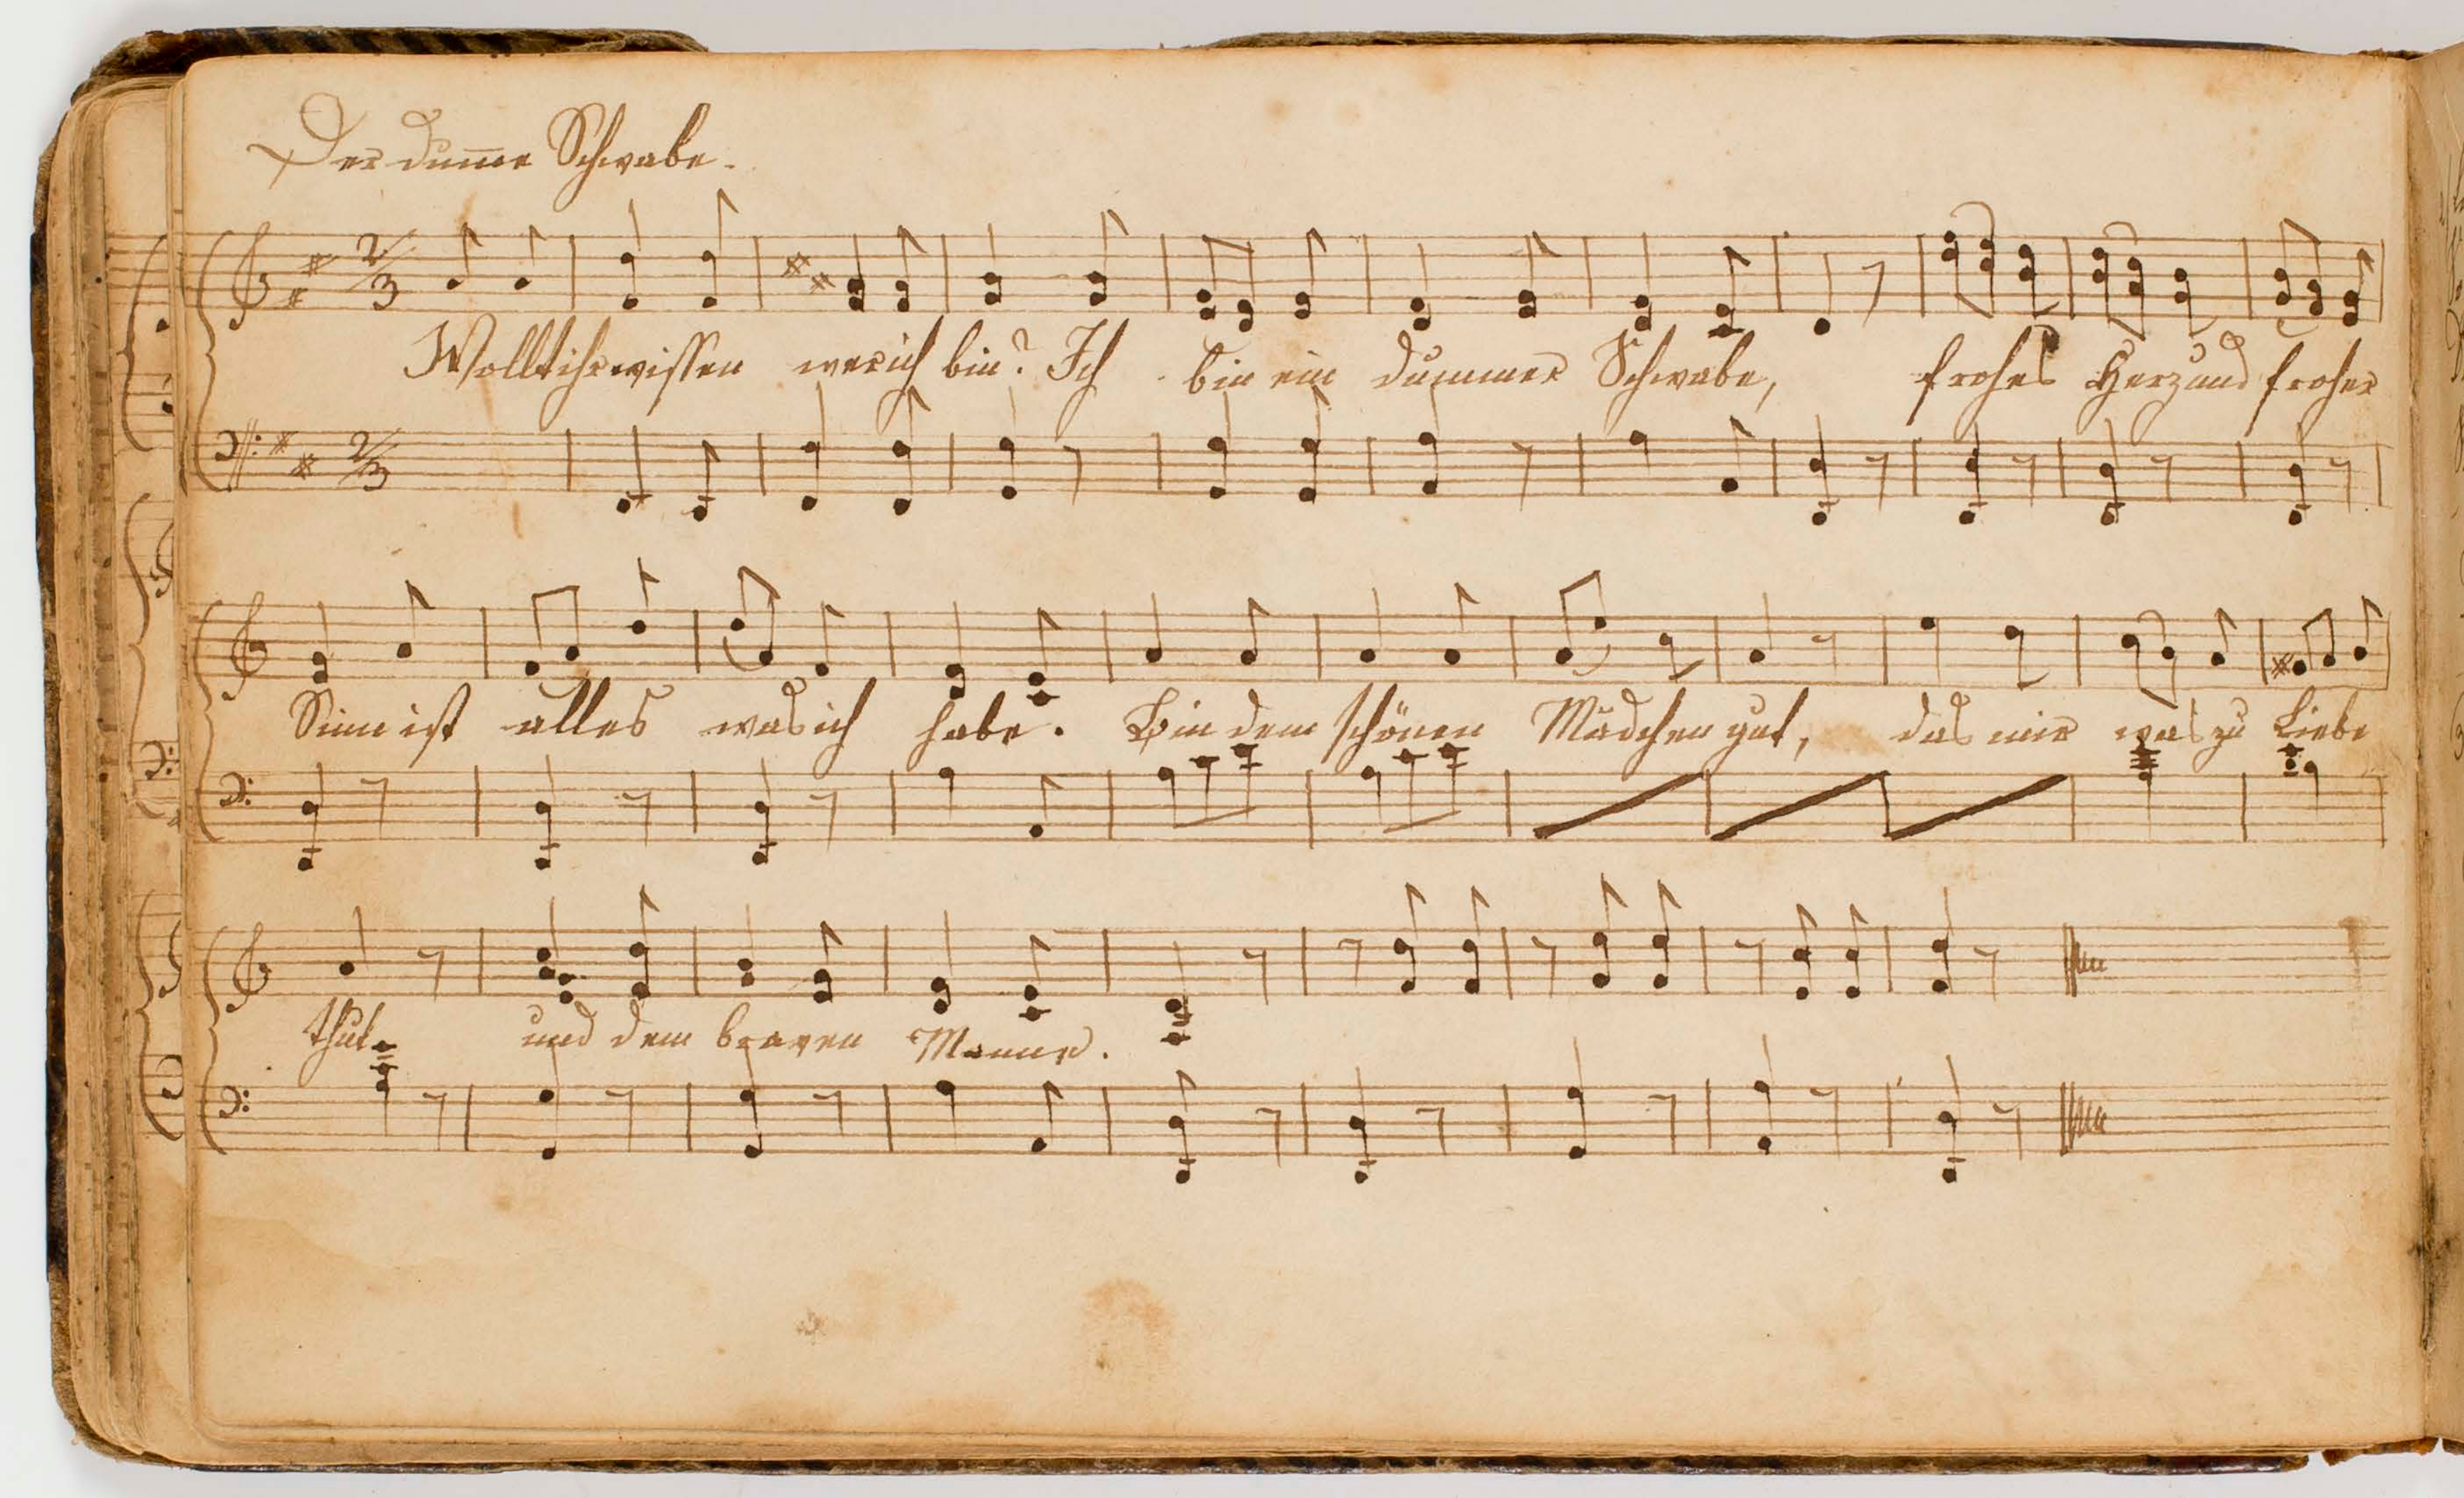 Der dum̄e Schwabe.
2/3
Wollt ihr wissen wer ich bin? Ich bin ein dummer Schwabe, frohes Herz und froher
2/3
Sinn ist alles was ich habe. Bin dem schönen Mädchen gut, das mir was zu Liebe
thut und dem braven Manne.